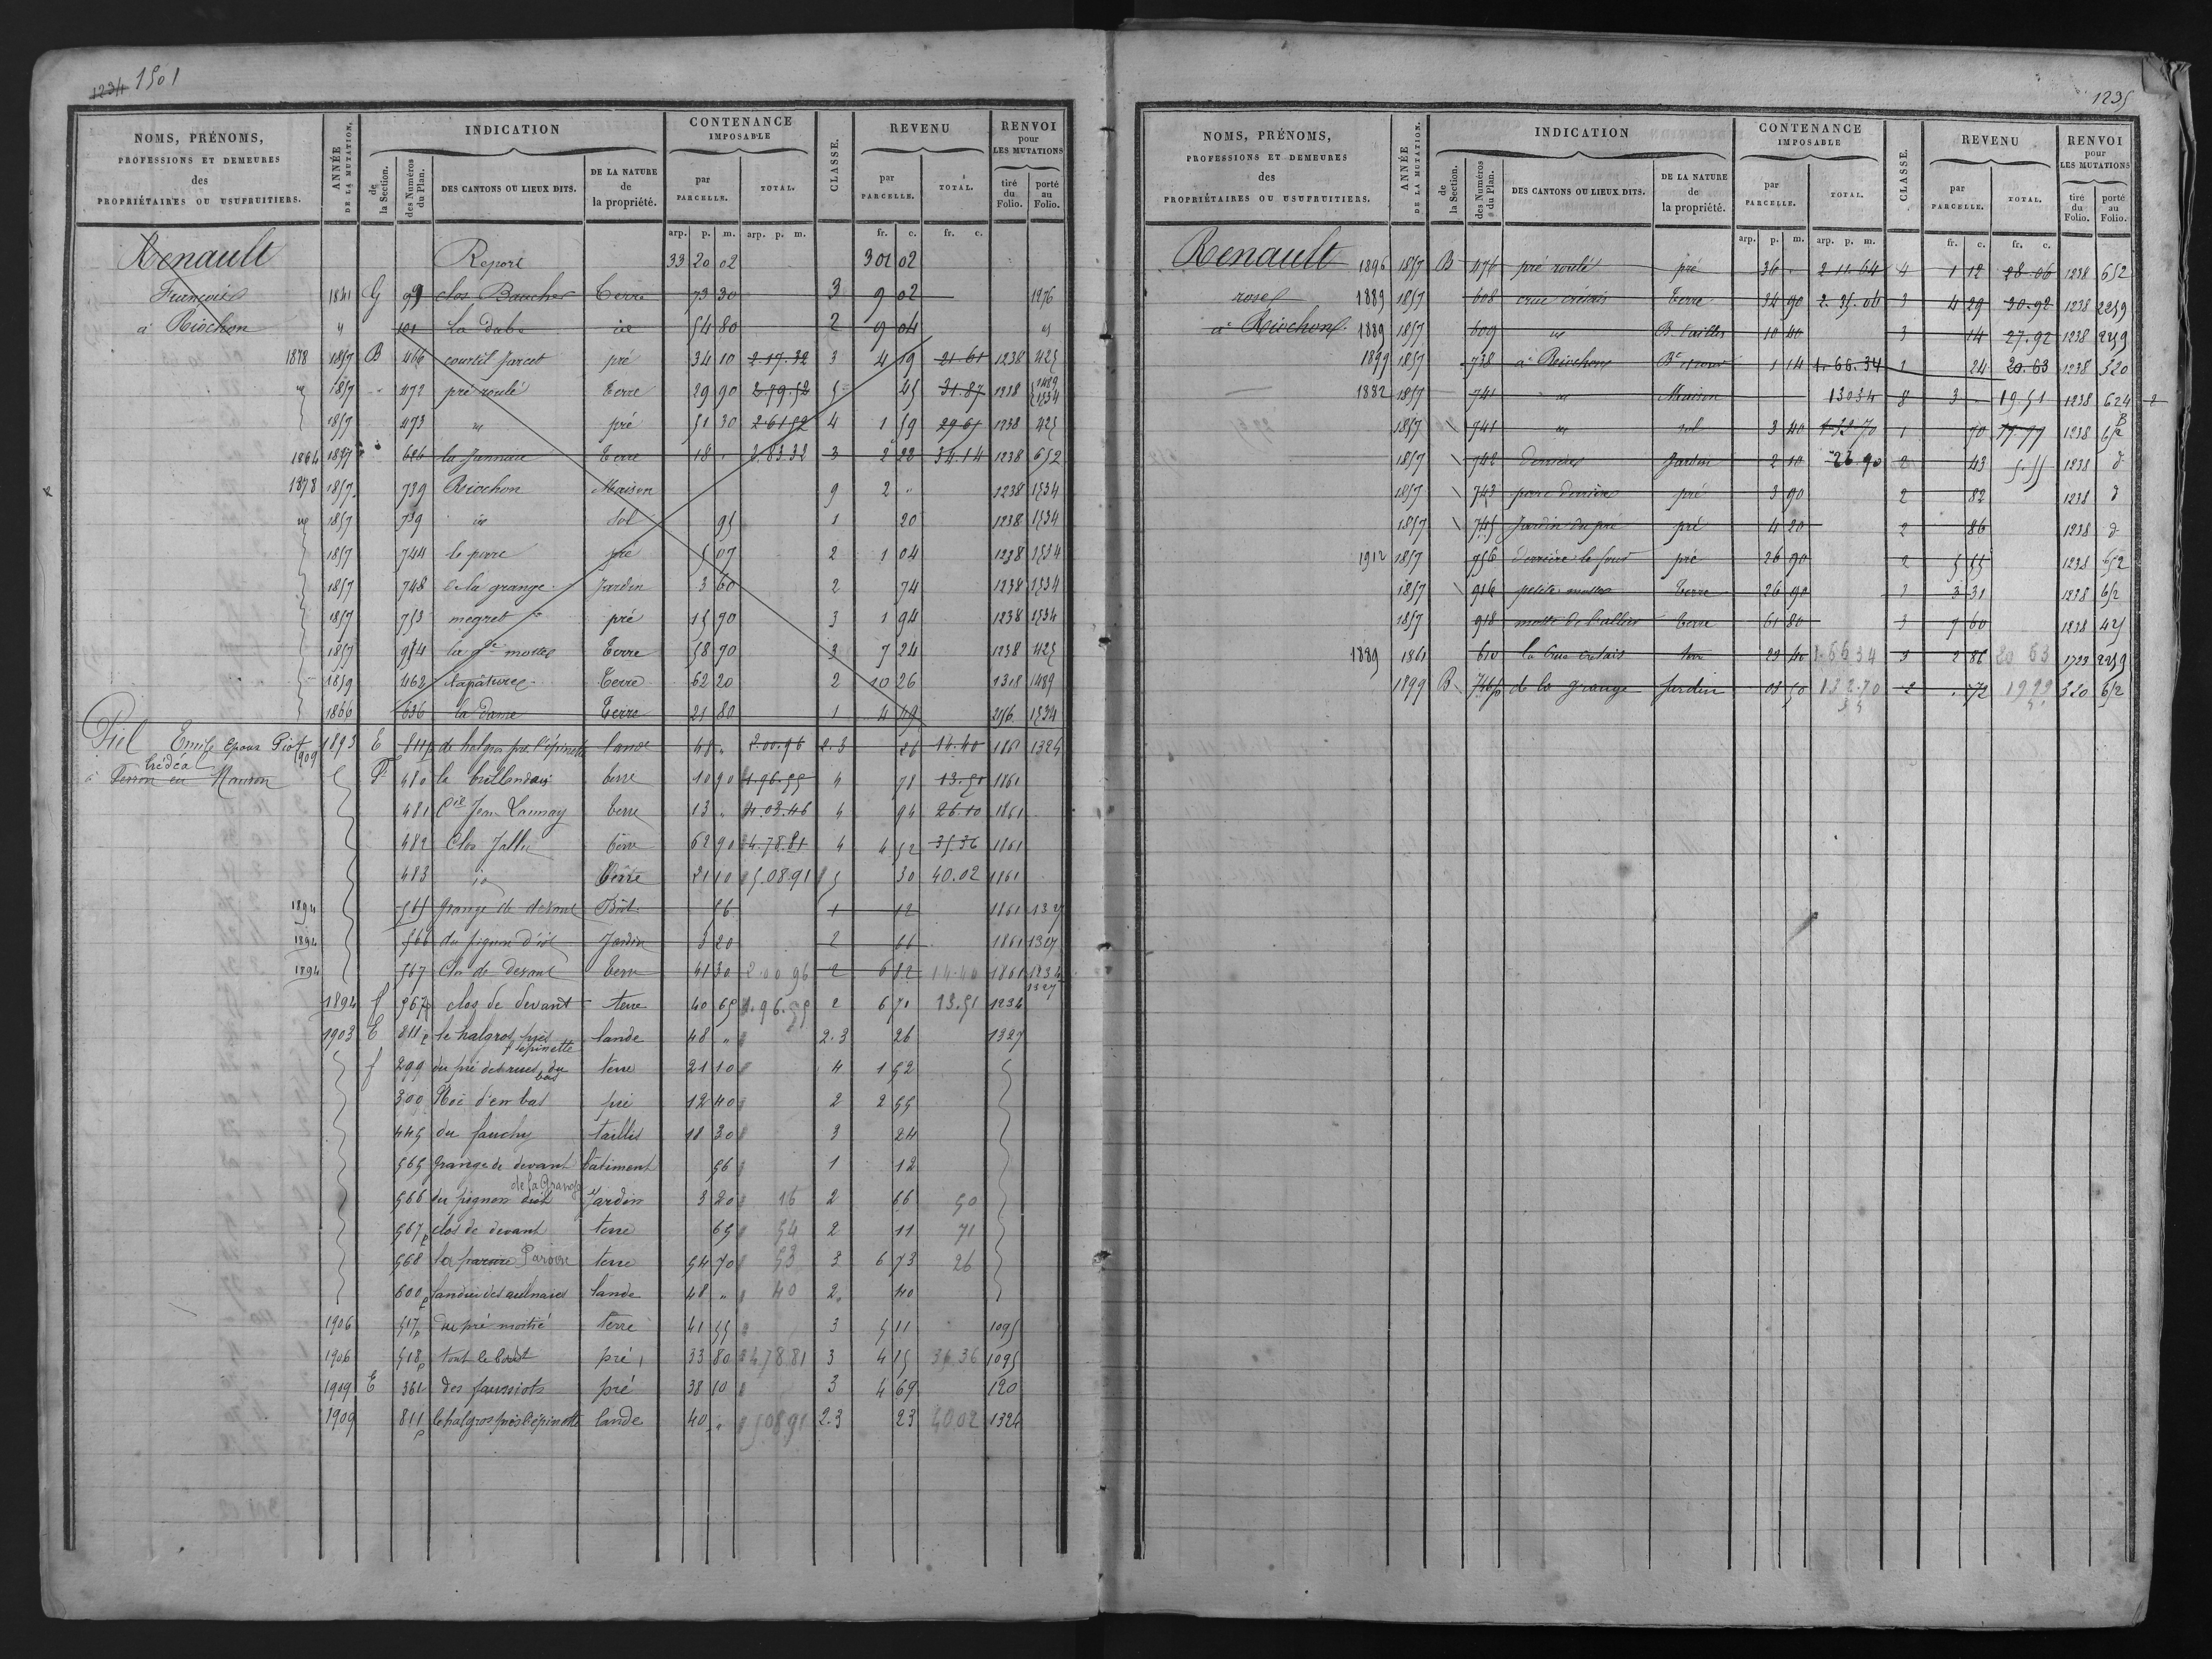 1234 1501
NOMS, PRÉNOMS, PROFESSIONS ET DEMEURES des PROPRIÉTAIRES OU USUFRUITIERS.
ANNÉE DE LA MUTATION.
INDICATION
de la Section.
des Numéros du Plan.
DES CANTONS OU LIEUX DITS.
DE LA NATURE de la propriété.
CONTENANCE IMPOSABLE
par PARCELLE.
TOTAL.
CLASSE.
REVENU
par PARCELLE.
TOTAL.
RENVOI pour LES MUTATIONS
tiré du Folio.
porté au Folio.
arp. p. m. arp. p. m. fr. c. fr. c.
Renault Report 33 20 02 301 02
François 1841 G 99 clos Baucher Terre 73 30 3 9 02 1276
à Riochon " 101 La Dabo id 54 80 2 9 04 "
1878 1857 B 466 courtil Jarcet pré 34 10 2.17.32 3 4 19 21.61 1238 425
1857 472 pré roulé Terre 29 90 2.79.52 5 45 31.87 1238 1489 1534
1857 473 id pré 51 30 2.61.52 4 1 59 29.61 1238 425
1864 1857 626 la Jannaie Terre 18 " 2.83.32 3 2 22 34.14 1238 652
1878 1857 739 Riochon Maison 9 2 " 1238 1534
1857 739 id Sol 95 1 20 1238 1534
1857 744 le parc pré 5 07 2 1 04 1238 1534
1857 748 de la grange Jardin 3 60 2 74 1238 1534
1857 753 megret pré 15 90 3 1 94 1238 1534
1857 914 la gde mottes Terre 58 70 3 7 24 1238 425
1859 462 la pâture Terre 62 20 2 10 26 1318 1489
1866 636 la Dame Terre 21 80 1 4 49 256 1534
Piel Emile Epoux Piot 1909 1893 E 811p de halgros près l'épinette lande 48 " 2.00.96 2.3 26 14.40 1861 1324
Crédéa
à Perron en Mauron F 480 le brillandais terre 10 90 1.96.55 4 78 13.51 1861
481 Jean Launay terre 13 " 4.03.46 4 94 26.10 1861
482 Clos Jallu terre 62 90 4.78.81 4 4 52 35.36 1861
483 id terre 21 10 5.08.91 5 30 40.02 1861
1894 565 Grange de devant Bât. 56 1 12 1861 1327
1894 566 du pignon d'id Jardin 3 20 2 66 1861 1327
1894 567 Clos de devant terre 41 30 2.00.96 2 6 82 14.40 1861 1234 1327
1894 f 567p clos de devant terre 40 65 1.96.55 2 6 71 13.51 1234
1903 E 811p le halgros près l'epinette lande 48 " 2.3 26 1327
f 299 du pré des rues du bas terre 21 10 4 1 52
300 Noë d'en bas pré 12 40 2 2 55
445 du fauchy taillis 18 30 3 24
565 Grange de devant bâtiment 56 1 12
566 du pignon dud de la Grange Jardin 3 20 16 2 66 50
567p clos de devant terre 65 54 2 11 71
568 la paroire Paroire terre 54 70 53 3 6 73 26
600p landier des aulnaies lande 48 " 40 2 40
1906 517p du pré moitié terre 41 55 3 5 11 1095
1906 518p tout le bout pré 33 80 4.78.81 3 4 15 36.36 1095
1909 E 361 des faussiots pré 38 10 3 4 69 120
1909 811p le halgros près l'épinette lande 40 " 5.08.91 2.3 23 40.02 1324
1235
NOMS, PRÉNOMS, PROFESSIONS ET DEMEURES des PROPRIÉTAIRES OU USUFRUITIERS.
ANNÉE DE LA MUTATION.
INDICATION
de la Section.
des Numéros du Plan.
DES CANTONS OU LIEUX DITS.
DE LA NATURE de la propriété.
CONTENANCE IMPOSABLE
par PARCELLE.
TOTAL.
CLASSE.
REVENU
par PARCELLE.
TOTAL.
RENVOI pour LES MUTATIONS
tiré du Folio.
porté au Folio.
arp. p. m. arp. p. m. fr. c. fr. c.
Renault 1896 1857 B 476 pré roulé pré 36 " 2.11.64 4 1 12 28.06 1238 652
rose 1889 1857 608 crue crétais Terre 34 90 2.35.06 3 4 29 30.92 1238 2259
à Riochon 1889 1857 609 id B. taillis 10 40 3 14 27.92 1238 2259
1899 1857 738 à Riochon 1 14 1.66.34 1 24 20.63 1238 520
1882 1857 741 id Maison 130 34 8 3 " 19.51 1238 624
1857 741 id sol 3 40 1.32.70 1 70 19.97 1238 652
1857 742 derrière Jardin 2 10 26.90 2 43 5.55 1238 d
1857 743 parc derrière pré 3 90 2 82 1238 d
1857 745 Jardin du parc pré 4 20 2 86 1238 d
1912 1857 756 derrière le four pré 26 90 2 5 55 1238 652
1857 916 petite mottes terre 26 90 3 3 31 1238 652
1857 918 motte de l'allier terre 61 80 3 7 60 1238 425
1889 1861 610 la Crue cretais terre 23 40 1.66.34 3 2 86 20 63 1729 2259
1899 B 746p de la grange Jardin 03 50 132.70 2 " 72 19 99 520 652